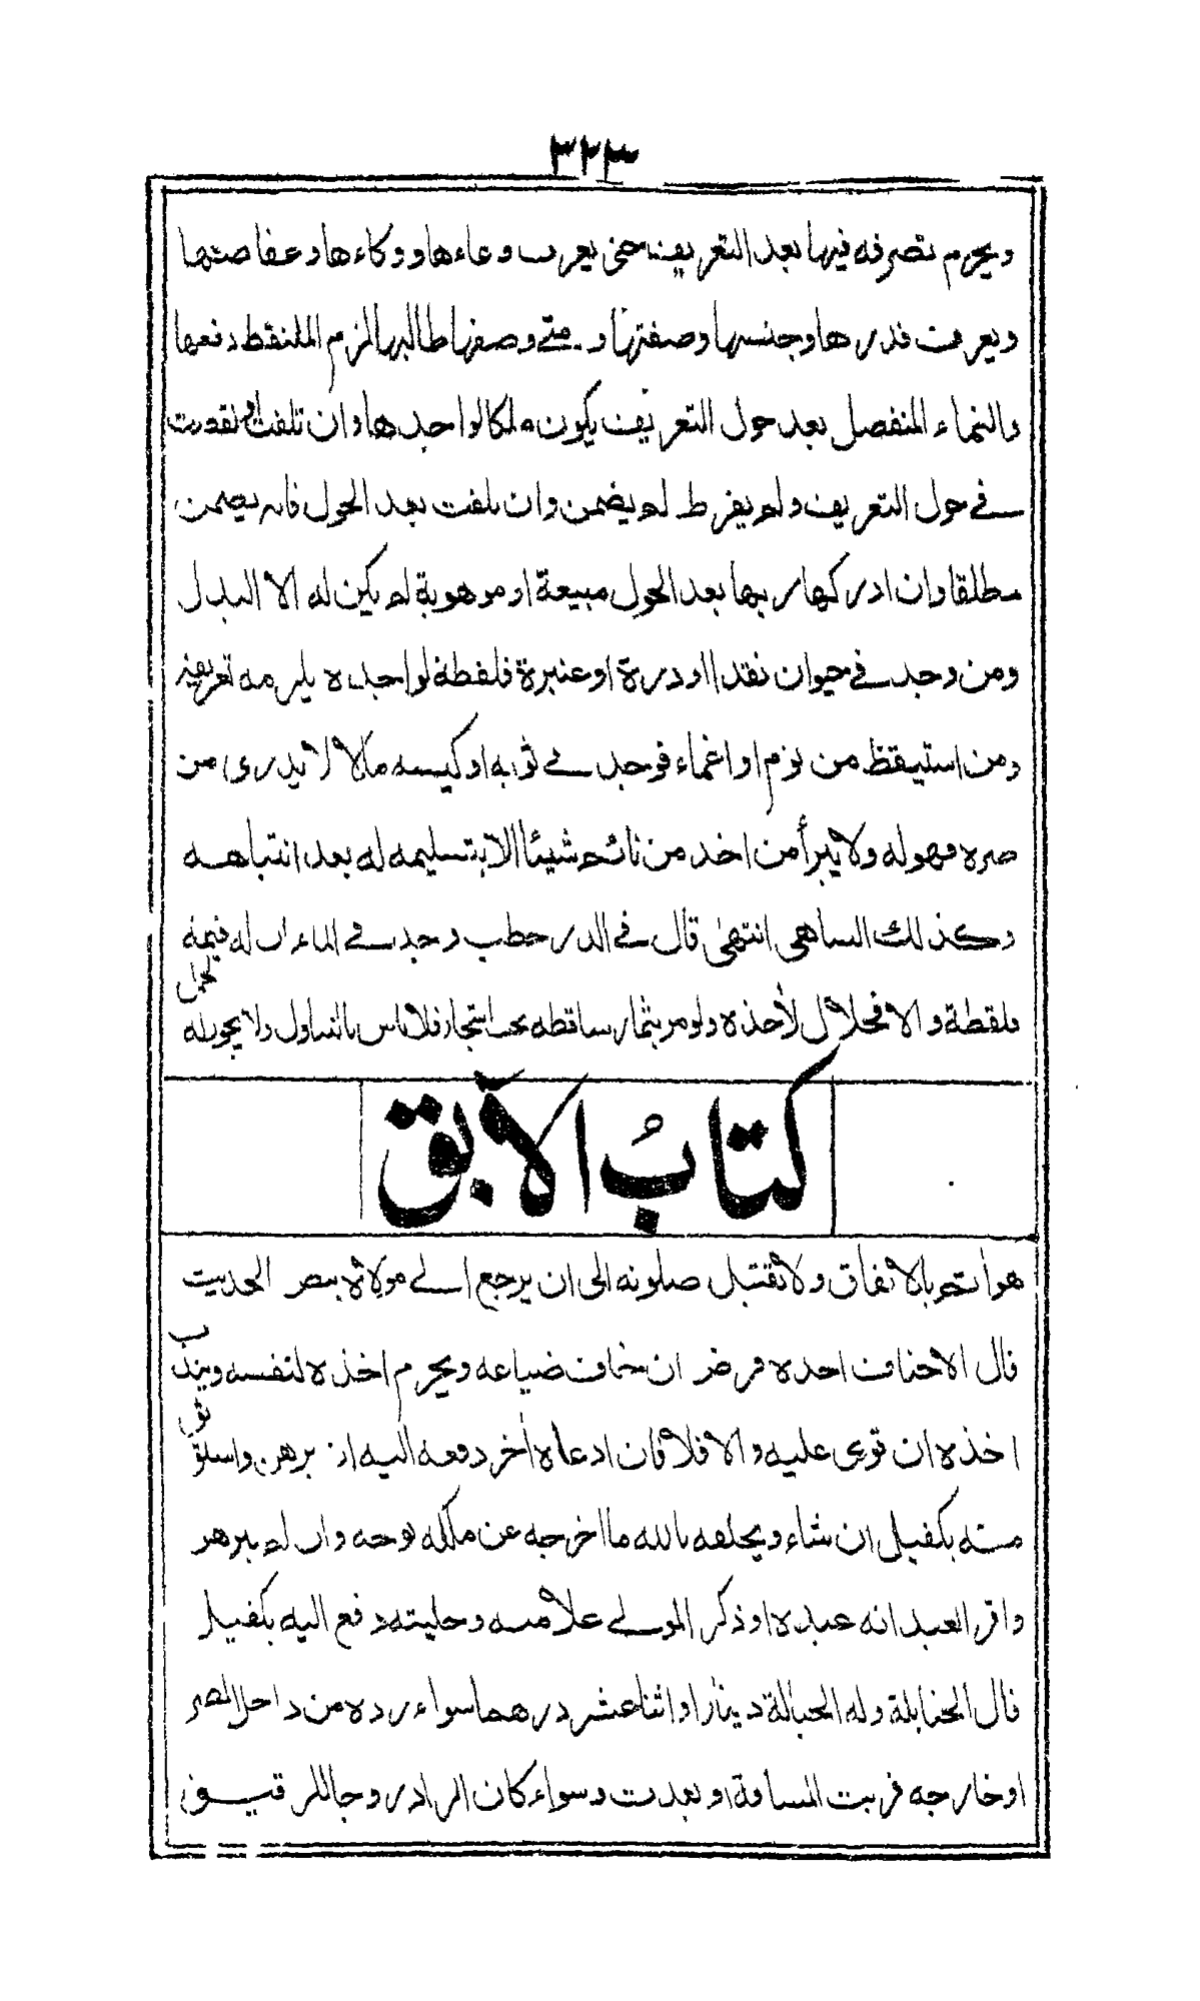 ٣٢٣
ويحرم تصرفه فيها بعد التعريف حتى يعرف وعاءها ووكاءها وعفاصها
ويعرف قدرها وجنسها وصفتها و متى وصفها طالبها لزم الملتقط دفعها
والنماء المنفصل بعد حول التعريف يكون ملكا لواجدها وان تلفت او نقصت
فے حول التعريف ولم يفرط لم يضمن وان تلفت بعد الحول فانه يضمن
مطلقا وان ادركها ربها بعد الحول مبيعة او موهوبة لم يكن له الا البدل
ومن وجد فے حيوان نقدا او درة او عنبرة فلقطة لواجده يلزمه تعريفه
ومن استيقظ من نوم او اغماء فوجد فے ثوبه او كيسه مالا لا يدرى من
صره فهو له ولا يبرأ من اخذ من نائم شيئا الا بتسليمه له بعد انتباهه
وكذلك الساهى انتهى قال فے الدر حطب وجد فے الماء ان له قيمة
فلقطة والا فحلال لأخذه ولو مر بثمار ساقطة تحت اشجار فلا باس بالتناول ولا يجوز له الحمل
كتابُ الآبق
هو اثم بالاتفاق ولا تقبل صلوته الى ان يرجع الے مولاه بنص الحديث
قال الاحناف اخذه فرض ان خاف ضياعه ويحرم اخذه لنفسه ويندب
اخذه ان قوى عليه والا فلا فان ادعاه أخر دفعه اليه ان برهن واستوثق
منه بكفيل ان شاء ويحلفه بالله ما اخرجه عن ملكه بوجه وان لم يبرهن
واقر العبد انه عبده او ذكر المولے علامته وحليته دفع اليه بكفيل
قال الحنابلة وله الجعالة دينار او اثنا عشر درهما سواء رده من داخل المصر
او خارجه قربت المسافة او بعدت وسواء كان الراد زوجا للرقيق